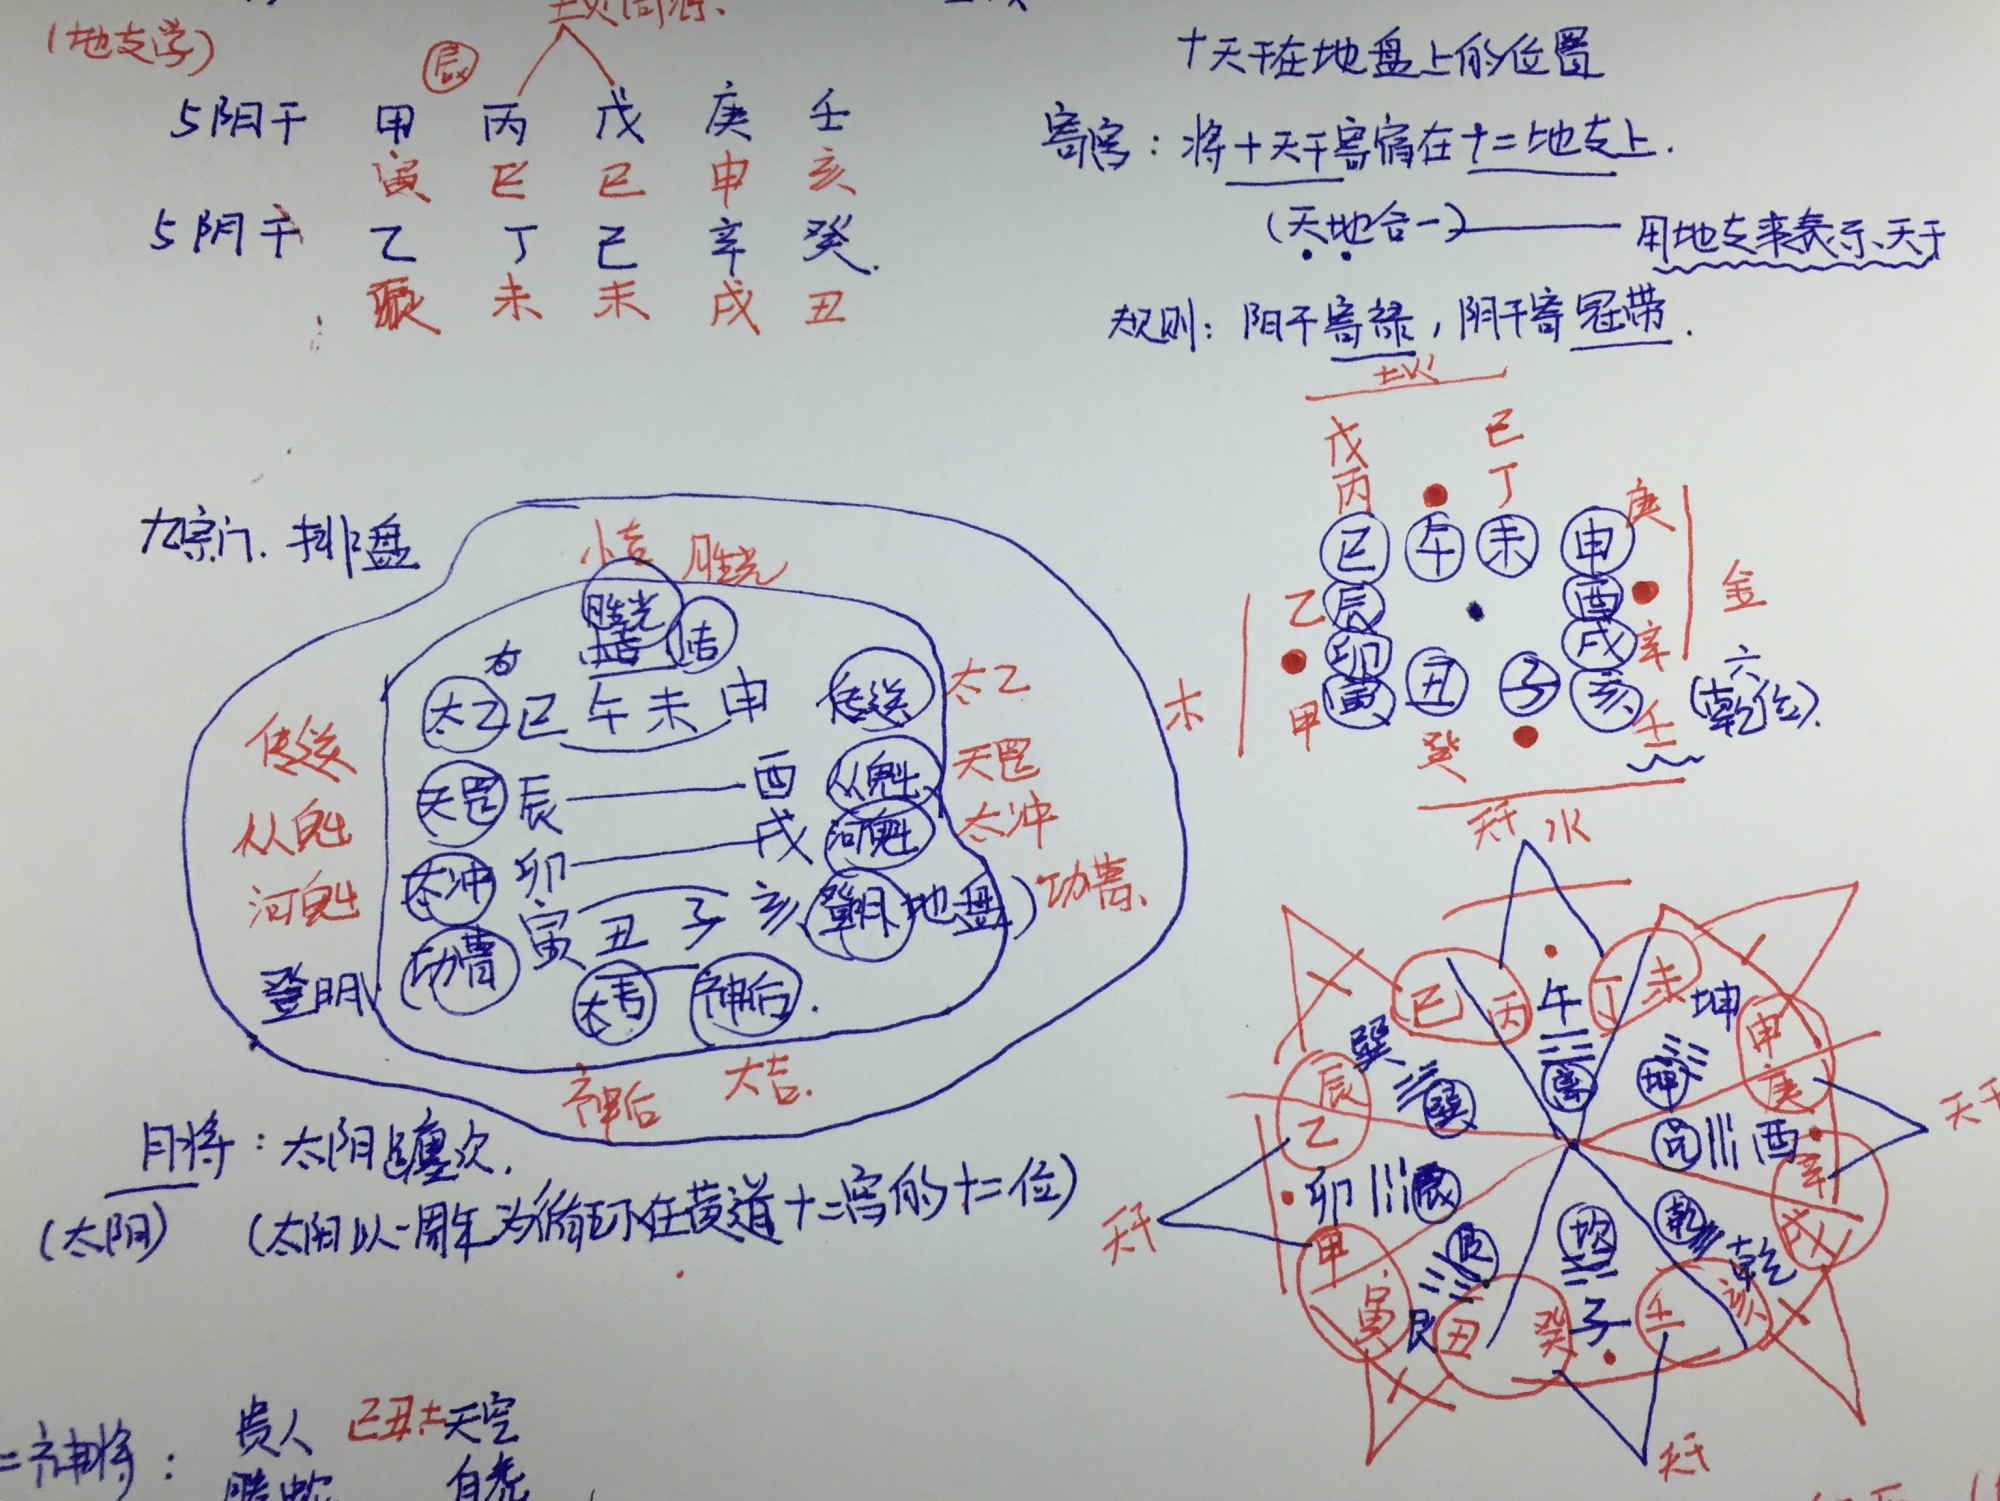 土火同源.
(地支学)
辰
5阳干 甲 丙 戊 庚 壬
寅 巳 巳 申 亥
5阴干 乙 丁 己 辛 癸.
辰 未 未 戌 丑
十天干在地盘上的位置
寄宫：将十天干寄宿在十二地支上.
(天地合一) 用地支来表示天干
规则：阳干寄禄，阴干寄冠带.
土火
戊 己
丙 丁 庚
巳 午 未 申
乙 辰 酉 金
卯 戌 辛
木 甲 寅 丑 子 亥 壬 (乾位).
六
癸
天干 水
九宗门. 排盘
小吉 胜光
胜光
小吉 小吉
太乙 巳 午 未 申 传送 太乙
传送
天罡 辰 酉 从魁 天罡
从魁
戌 河魁 太冲
河魁 太冲 卯
寅 丑 子 亥 登明 (地盘) 功曹.
登明 功曹 大吉 神后.
神后 大吉.
月将：太阳 躔次.
(太阳) (太阳以一周年为循环在黄道十二宫的十二位)
巳 丙 午 丁 未 坤
巽 离 坤 申
辰 巽 庚 天干
乙 兑 酉
卯 震 辛
天干 坎 乾 戌
甲 艮 乾
寅 艮 丑 癸 子 壬 亥
天干
二神将： 贵人 己丑土 天空
螣蛇 白虎